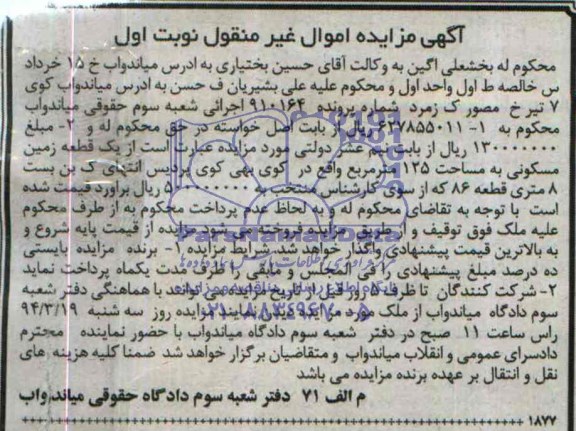 آگهی مزایده اموال غیر منقول نوبت اول
محکوم له بخشعلی اگین به وکالت آقای حسین بختیاری به ادرس میاندواب خ ۱۵ خرداد
س خالصه ط اول واحد اول و محکوم علیه علی بشیریان ف حسن به ادرس میاندواب کوی
۷ تیر خ مصور ک زمرد شماره پرونده ۹۱۰۱۶۴ اجرائی شعبه سوم حقوقی میاندواب
محکوم به ۱- ۶۳۷۸۵۵۰۱۱ ریال از بابت اصل خواسته در حق محکوم له و ۲- مبلغ
۱۳۰۰۰۰۰۰ ریال از بابت نیم عشر دولتی مورد مزایده عبارت است از یک قطعه زمین
مسکونی به مساحت ۱۲۵ مترمربع واقع در کوی بهی کوی پردیس انتهای ک بن بست
۸ متری قطعه ۸۶ که از سوی کارشناس منتخب به ریال برآورد قیمت شده
است با توجه به تقاضای محکوم له و به لحاظ عدم پرداخت محکوم به از طرف محکوم
علیه ملک فوق توقیف و از طریق مزایده فروخته می شود مزایده از قیمت پایه شروع و
به بالاترین قیمت پیشنهادی واگذار خواهد شد. شرایط مزایده ۱- برنده مزایده بایستی
ده درصد مبلغ پیشنهادی را فی المجلس و مابقی را ظرف مدت یکماه پرداخت نماید
۲- شرکت کنندگان تا ظرف ۵ روز قبل از تاریخ مزایده می توانند با هماهنگی دفتر شعبه
سوم دادگاه میاندواب از ملک مورد مزایده دیدن نمایند مزایده روز سه شنبه ۹۴/۳/۱۹
راس ساعت ۱۱ صبح در دفتر شعبه سوم دادگاه میاندواب با حضور نماینده محترم
دادسرای عمومی و انقلاب میاندواب و متقاضیان برگزار خواهد شد ضمنا کلیه هزینه های
نقل و انتقال بر عهده برنده مزایده می باشد
م الف ۷۱ دفتر شعبه سوم دادگاه حقوقی میاندواب
۱۸۷۷